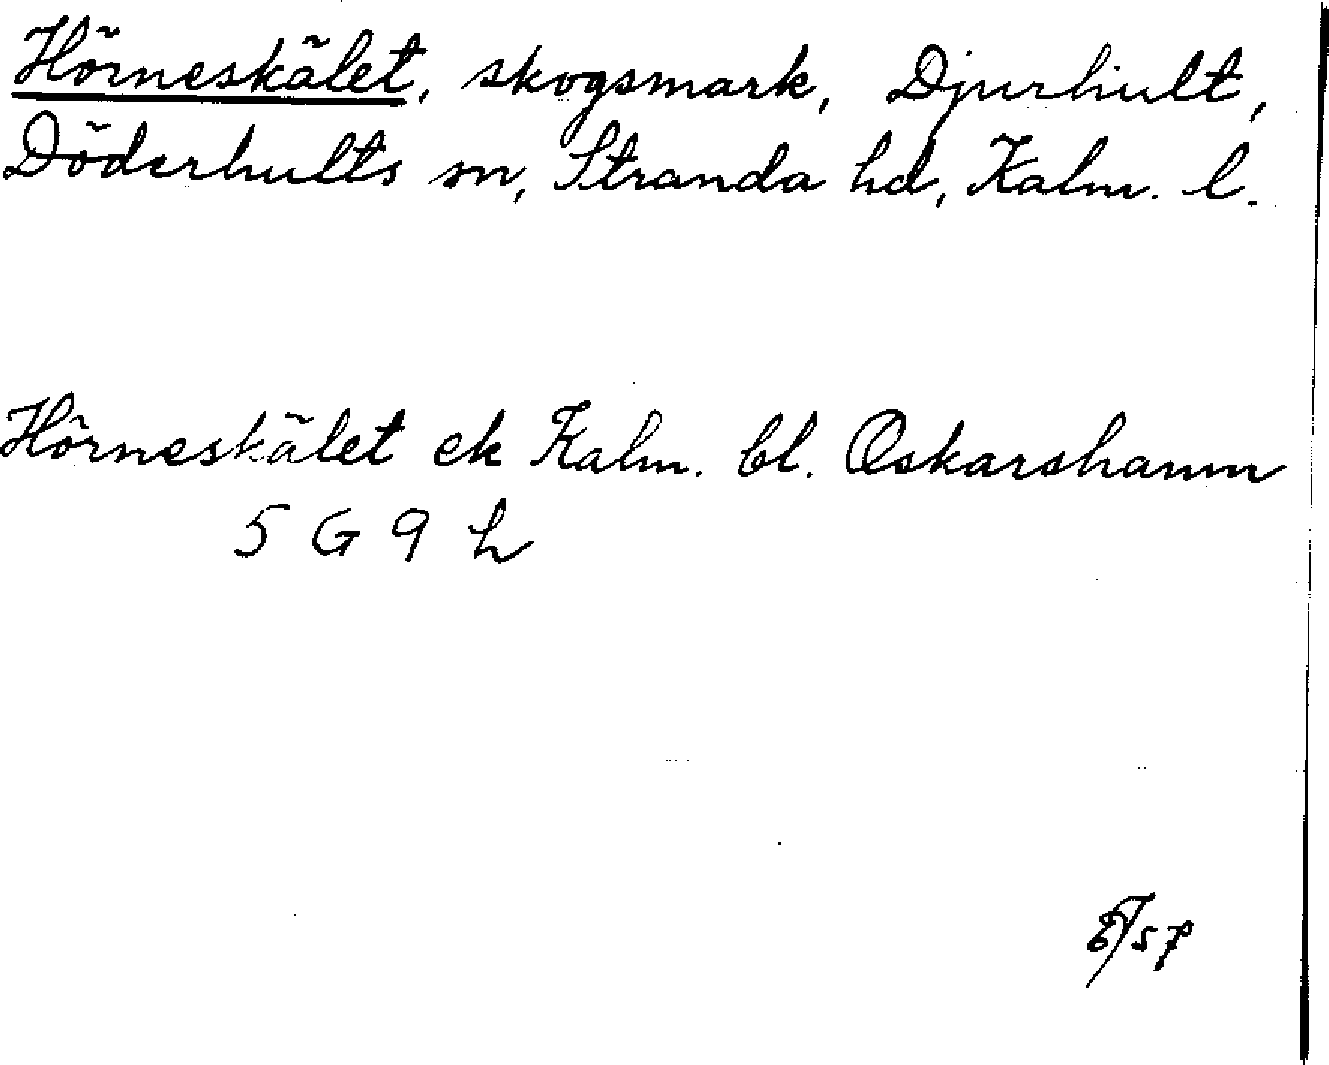 Hörneskälet, skogsmark, Djurhult,
Döderhults sn, Stranda hd, Kalm. l.
Hörneskälet ek Kalm. bl. Oskarshamn
5 G 9 h